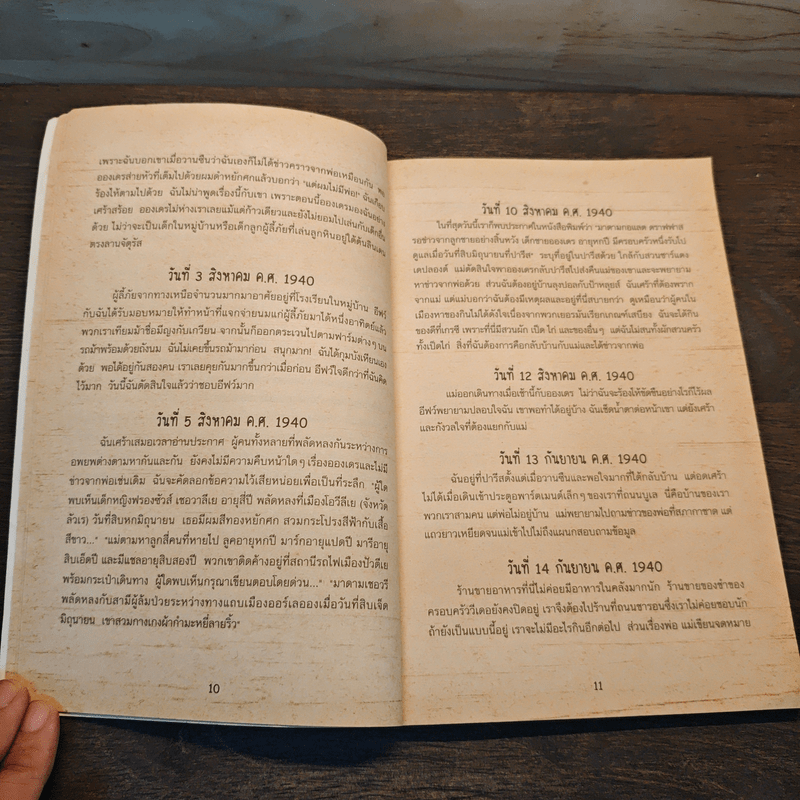 เพราะฉันบอกเขาเมื่อวานซืนว่าฉันเองก็ไม่ได้ข่าวคราวจากพ่อเหมือนกัน พอ
อองเดรส่ายหัวที่เต็มไปด้วยผมดำหยักศกแล้วบอกว่า "แต่ผมไม่มีพ่อ!" ฉันเกือบ
ร้องไห้ตามไปด้วย ฉันไม่น่าพูดเรื่องนี้กับเขา เพราะตอนนี้อองเดรมองฉันอย่าง
เศร้าสร้อย อองเดรไม่ห่างเราเลยแม้แต่ก้าวเดียวและยังไม่ยอมไปเล่นกับเด็กอื่น
ด้วย ไม่ว่าจะเป็นเด็กในหมู่บ้านหรือเด็กลูกผู้ลี้ภัยที่เล่นลูกหินอยู่ใต้ต้นสนเดน
ตรงลานจัตุรัส
วันที่ 3 สิงหาคม ค.ศ. 1940
ผู้ลี้ภัยจากทางเหนือจำนวนมากมาอาศัยอยู่ที่โรงเรียนในหมู่บ้าน อีฟว์
กับฉันได้รับมอบหมายให้ทำหน้าที่แจกจ่ายนมแก่ผู้ลี้ภัยมาได้หนึ่งอาทิตย์แล้ว
พวกเราเทียมม้าชื่อมีญงกับเกวียน จากนั้นก็ออกตระเวนไปตามฟาร์มต่างๆ บน
รถม้าพร้อมด้วยถังนม ฉันไม่เคยขึ้นรถม้ามาก่อน สนุกมาก! ฉันได้กุมบังเหียนเอง
ด้วย พอได้อยู่กันสองคน เราเลยคุยกันมากขึ้นกว่าเมื่อก่อน อีฟว์ใจดีกว่าที่ฉันคิด
ไว้มาก วันนี้ฉันตัดสินใจแล้วว่าชอบอีฟว์มาก
วันที่ 5 สิงหาคม ค.ศ. 1940
ฉันเศร้าเสมอเวลาอ่านประกาศ ผู้คนทั้งหลายที่พลัดหลงกันระหว่างการ
อพยพต่างตามหากันและกัน ยังคงไม่มีความคืบหน้าใดๆ เรื่องอองเดรและไม่มี
ข่าวจากพ่อเช่นเดิม ฉันจะคัดลอกข้อความไว้เสียหน่อยเพื่อเป็นที่ระลึก "ผู้ใด
พบเห็นเด็กหญิงฟรองซัวส์ เชอวาลีเย อายุสี่ปี พลัดหลงที่เมืองโอวีลีเย (จังหวัด
ลัวเร) วันที่สิบหกมิถุนายน เธอมีผมสีทองหยักศก สวมกระโปรงสีฟ้ากับเสื้อ
สีขาว..." "แม่ตามหาลูกสี่คนที่หายไป ลูคอายุหกปี มาร์กอายุแปดปี มารีอายุ
สิบเอ็ดปี และมีแชลอายุสิบสองปี พวกเขาติดค้างอยู่ที่สถานีรถไฟเมืองปัวตีเย
พร้อมกระเป๋าเดินทาง ผู้ใดพบเห็นกรุณาเขียนตอบโดยด่วน..." "มาดามเชอวรี
พลัดหลงกับสามีผู้ล้มป่วยระหว่างทางแถบเมืองออร์เลอองเมื่อวันที่สิบเจ็ด
มิถุนายน เขาสวมกางเกงผ้ากำมะหยี่ลายริ้ว"
10
วันที่ 10 สิงหาคม ค.ศ. 1940
ในที่สุดวันนี้เราก็พบประกาศในหนังสือพิมพ์ว่า "มาดามกอแลต ตราฟฟาส
รอข่าวจากลูกชายอย่างสิ้นหวัง เด็กชายอองเดร อายุหกปี มีครอบครัวหนึ่งรับไป
ดูแลเมื่อวันที่สิบมิถุนายนที่ปารีส" ระบุที่อยู่ในปารีสด้วย ใกล้กับสวนชาร์แดง
เดปลองต์ แม่ตัดสินใจพาอองเดรกลับปารีสไปส่งคืนแม่ของเขาและจะพยายาม
หาข่าวจากพ่อด้วย ส่วนฉันต้องอยู่บ้านลุงปอลกับป้าหลุยส์ ฉันเศร้าที่ต้องพราก
จากแม่ แต่แม่บอกว่าฉันต้องมีเหตุผลและอยู่ที่นี่สบายกว่า ดูเหมือนว่าผู้คนใน
เมืองหาของกินไม่ได้ดังใจเนื่องจากพวกเยอรมันเรียกเกณฑ์เสบียง ฉันจะได้กิน
ของดีที่เกาซี เพราะที่นี่มีสวนผัก เป็ด ไก่ และของอื่นๆ แต่ฉันไม่สนทั้งผักสวนครัว
ทั้งเป็ดไก่ สิ่งที่ฉันต้องการคือกลับบ้านกับแม่และได้ข่าวจากพ่อ
วันที่ 12 สิงหาคม ค.ศ. 1940
แม่ออกเดินทางเมื่อเช้านี้กับอองเดร ไม่ว่าฉันจะร้องไห้ขัดขืนอย่างไรก็ไร้ผล
อีฟว์พยายามปลอบใจฉัน เขาพอทำได้อยู่บ้าง ฉันเช็ดน้ำตาต่อหน้าเขา แต่ยังเศร้า
และกังวลใจที่ต้องแยกกับแม่
วันที่ 13 กันยายน ค.ศ. 1940
ฉันอยู่ที่ปารีสตั้งแต่เมื่อวานซืนและพอใจมากที่ได้กลับบ้าน แต่อดเศร้า
ไม่ได้เมื่อเดินเข้าประตูอพาร์ตเมนต์เล็กๆ ของเราที่ถนนบูเล นี่คือบ้านของเรา
พวกเราสามคน แต่พ่อไม่อยู่บ้าน แม่พยายามไปถามข่าวของพ่อที่สภากาชาด แต่
แถวยาวเหยียดจนแม่เข้าไปไม่ถึงแผนกสอบถามข้อมูล
วันที่ 14 กันยายน ค.ศ. 1940
ร้านขายอาหารที่นี่ไม่ค่อยมีอาหารในคลังมากนัก ร้านขายของชำของ
ครอบครัววีเดอยังคงปิดอยู่ เราจึงต้องไปร้านที่ถนนชารอนซึ่งเราไม่ค่อยชอบนัก
ถ้ายังเป็นแบบนี้อยู่ เราจะไม่มีอะไรกินอีกต่อไป ส่วนเรื่องพ่อ แม่เขียนจดหมาย
11